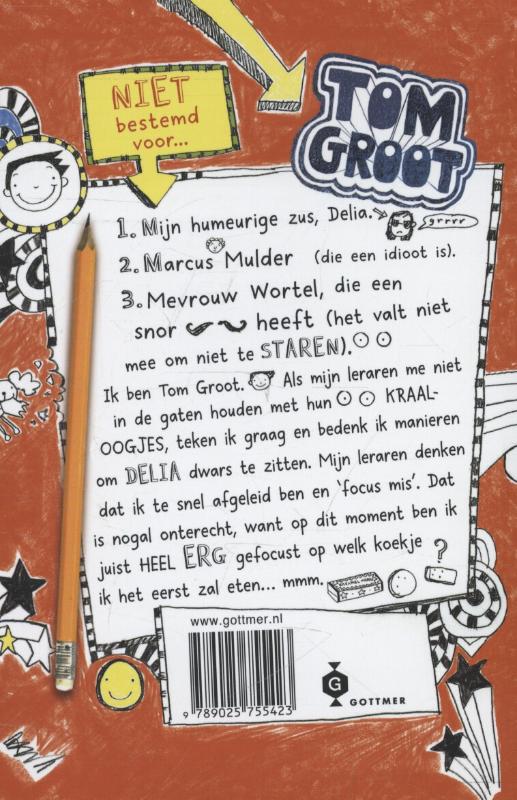 NIET
bestemd
voor...
TOM
GROOT
1. Mijn humeurige zus, Delia.
grrrr
2. Marcus Mulder (die een idioot is).
3. Mevrouw Wortel, die een
snor heeft (het valt niet
mee om niet te STAREN).
Ik ben Tom Groot. Als mijn leraren me niet
in de gaten houden met hun KRAAL-
OOGJES, teken ik graag en bedenk ik manieren
om DELIA dwars te zitten. Mijn leraren denken
dat ik te snel afgeleid ben en ‘focus mis’. Dat
is nogal onterecht, want op dit moment ben ik
juist HEEL ERG gefocust op welk koekje ?
ik het eerst zal eten... mmm.
www.gottmer.nl
9 789025 755423
G
GOTTMER